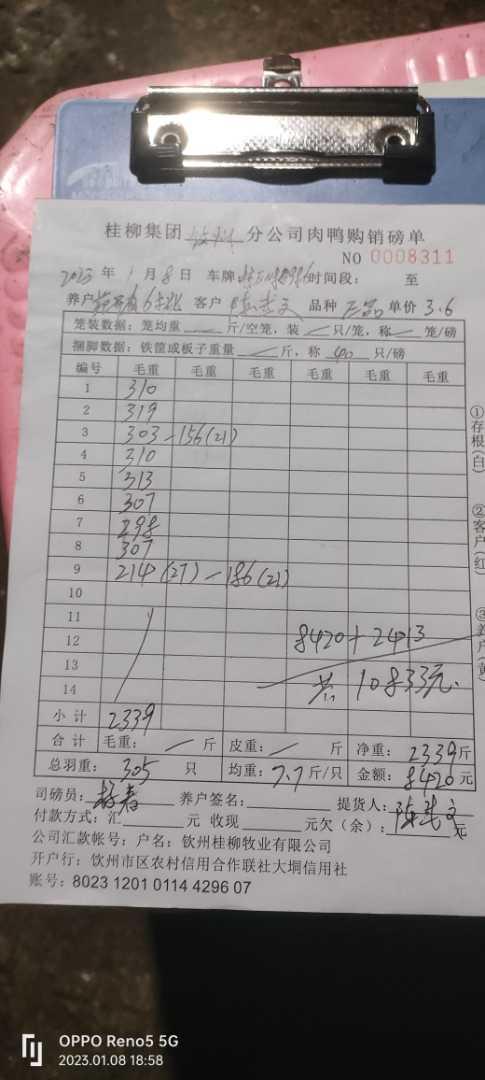 桂柳集团 钦州 分公司肉鸭购销磅单
NO 0008311
2023 年 1 月 8 日 车牌 时间段： 至
养户 客户 品种 正品 单价 3.6
笼装数据：笼均重 斤/空笼，装 只/笼，称 笼/磅
捆脚数据：铁筐或板子重量 斤，称 40 只/磅
编号 毛重 毛重 毛重 毛重 毛重 毛重
1 310
2 319
3 303-156(21)
4 310
5 313
6 307
7 298
8 307
9 214(27)-186(21)
10
11
12 8420+2413
13 共 10833元.
14
小计 2339
合计 毛重： 斤 皮重： 斤 净重： 2339 斤
总羽重： 305 只 均重：7.7 斤/只 金额：8420 元
司磅员： 养户签名： 提货人：
付款方式：汇 元 收现 元欠（余）： 元
公司汇款帐号：户名：钦州桂柳牧业有限公司
开户行：钦州市区农村信用合作联社大垌信用社
账号：8023 1201 0114 4296 07
①存根(白)
②客户(红)
③养户(黄)
OPPO Reno5 5G
2023.01.08 18:58